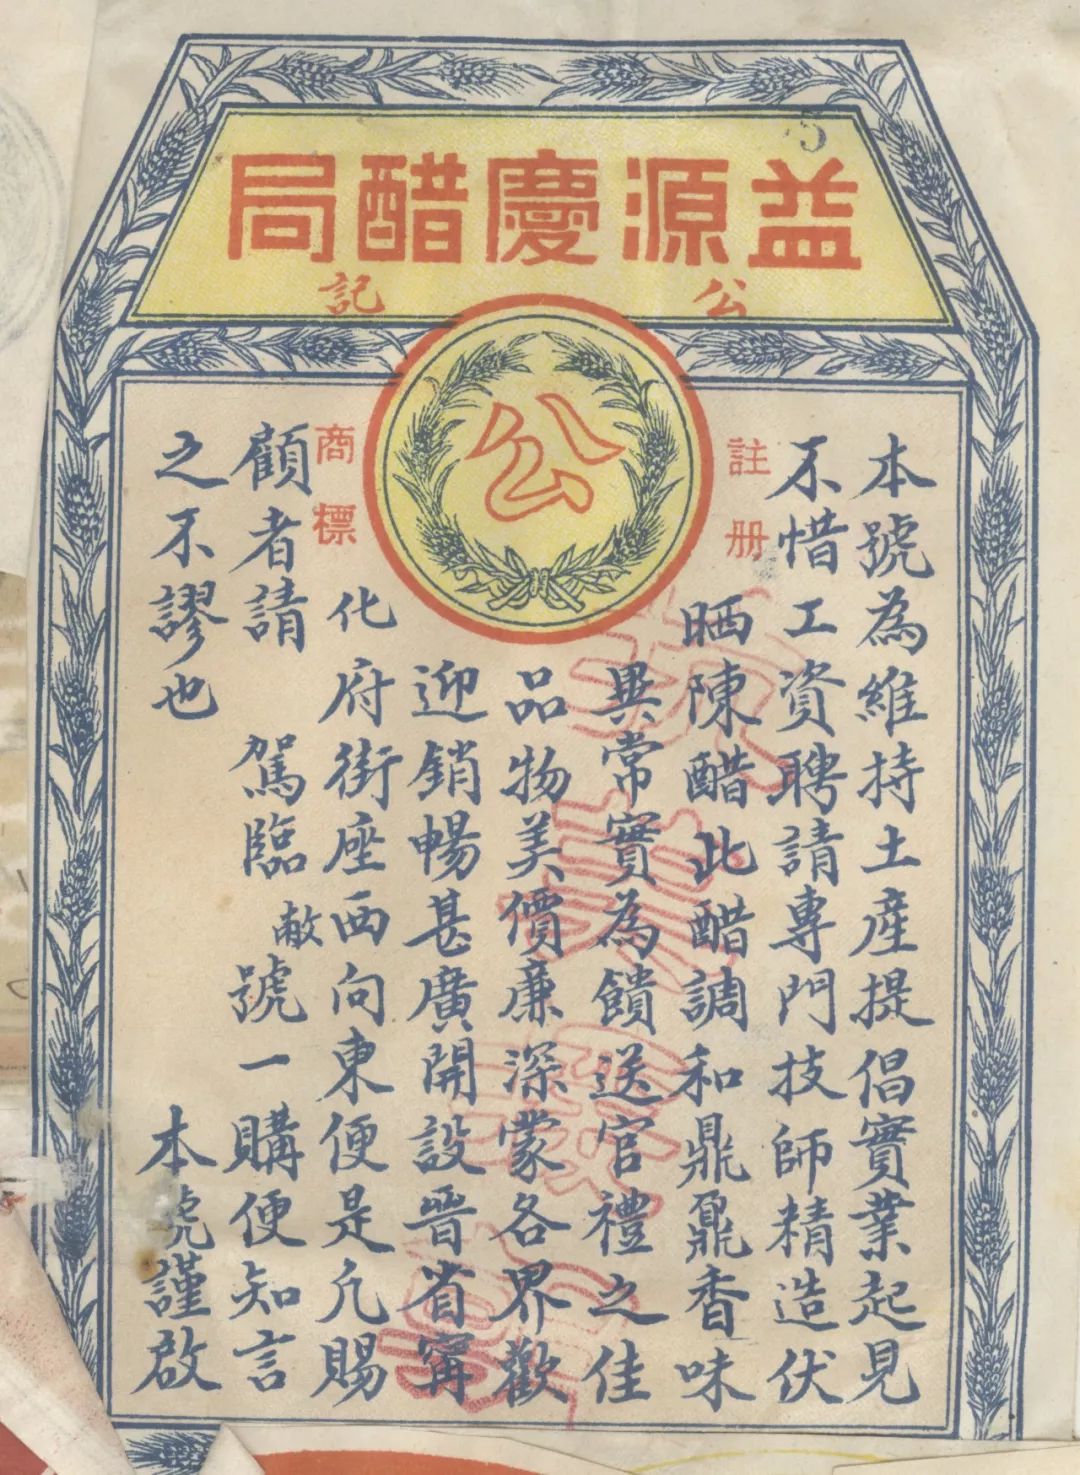 5
益源慶醋局
公記
公
註册
商標
本號為維持土產提倡實業起見
不惜工資聘請專門技師精造伏
晒陳醋此醋調和鼎鼐香味
異常實為饋送官禮之佳
品物美價廉深蒙各界歡
迎銷暢甚廣開設晉省甯
化府街座西向東便是凡賜
顧者請駕臨敝號一購便知言
之不謬也 本號謹啟